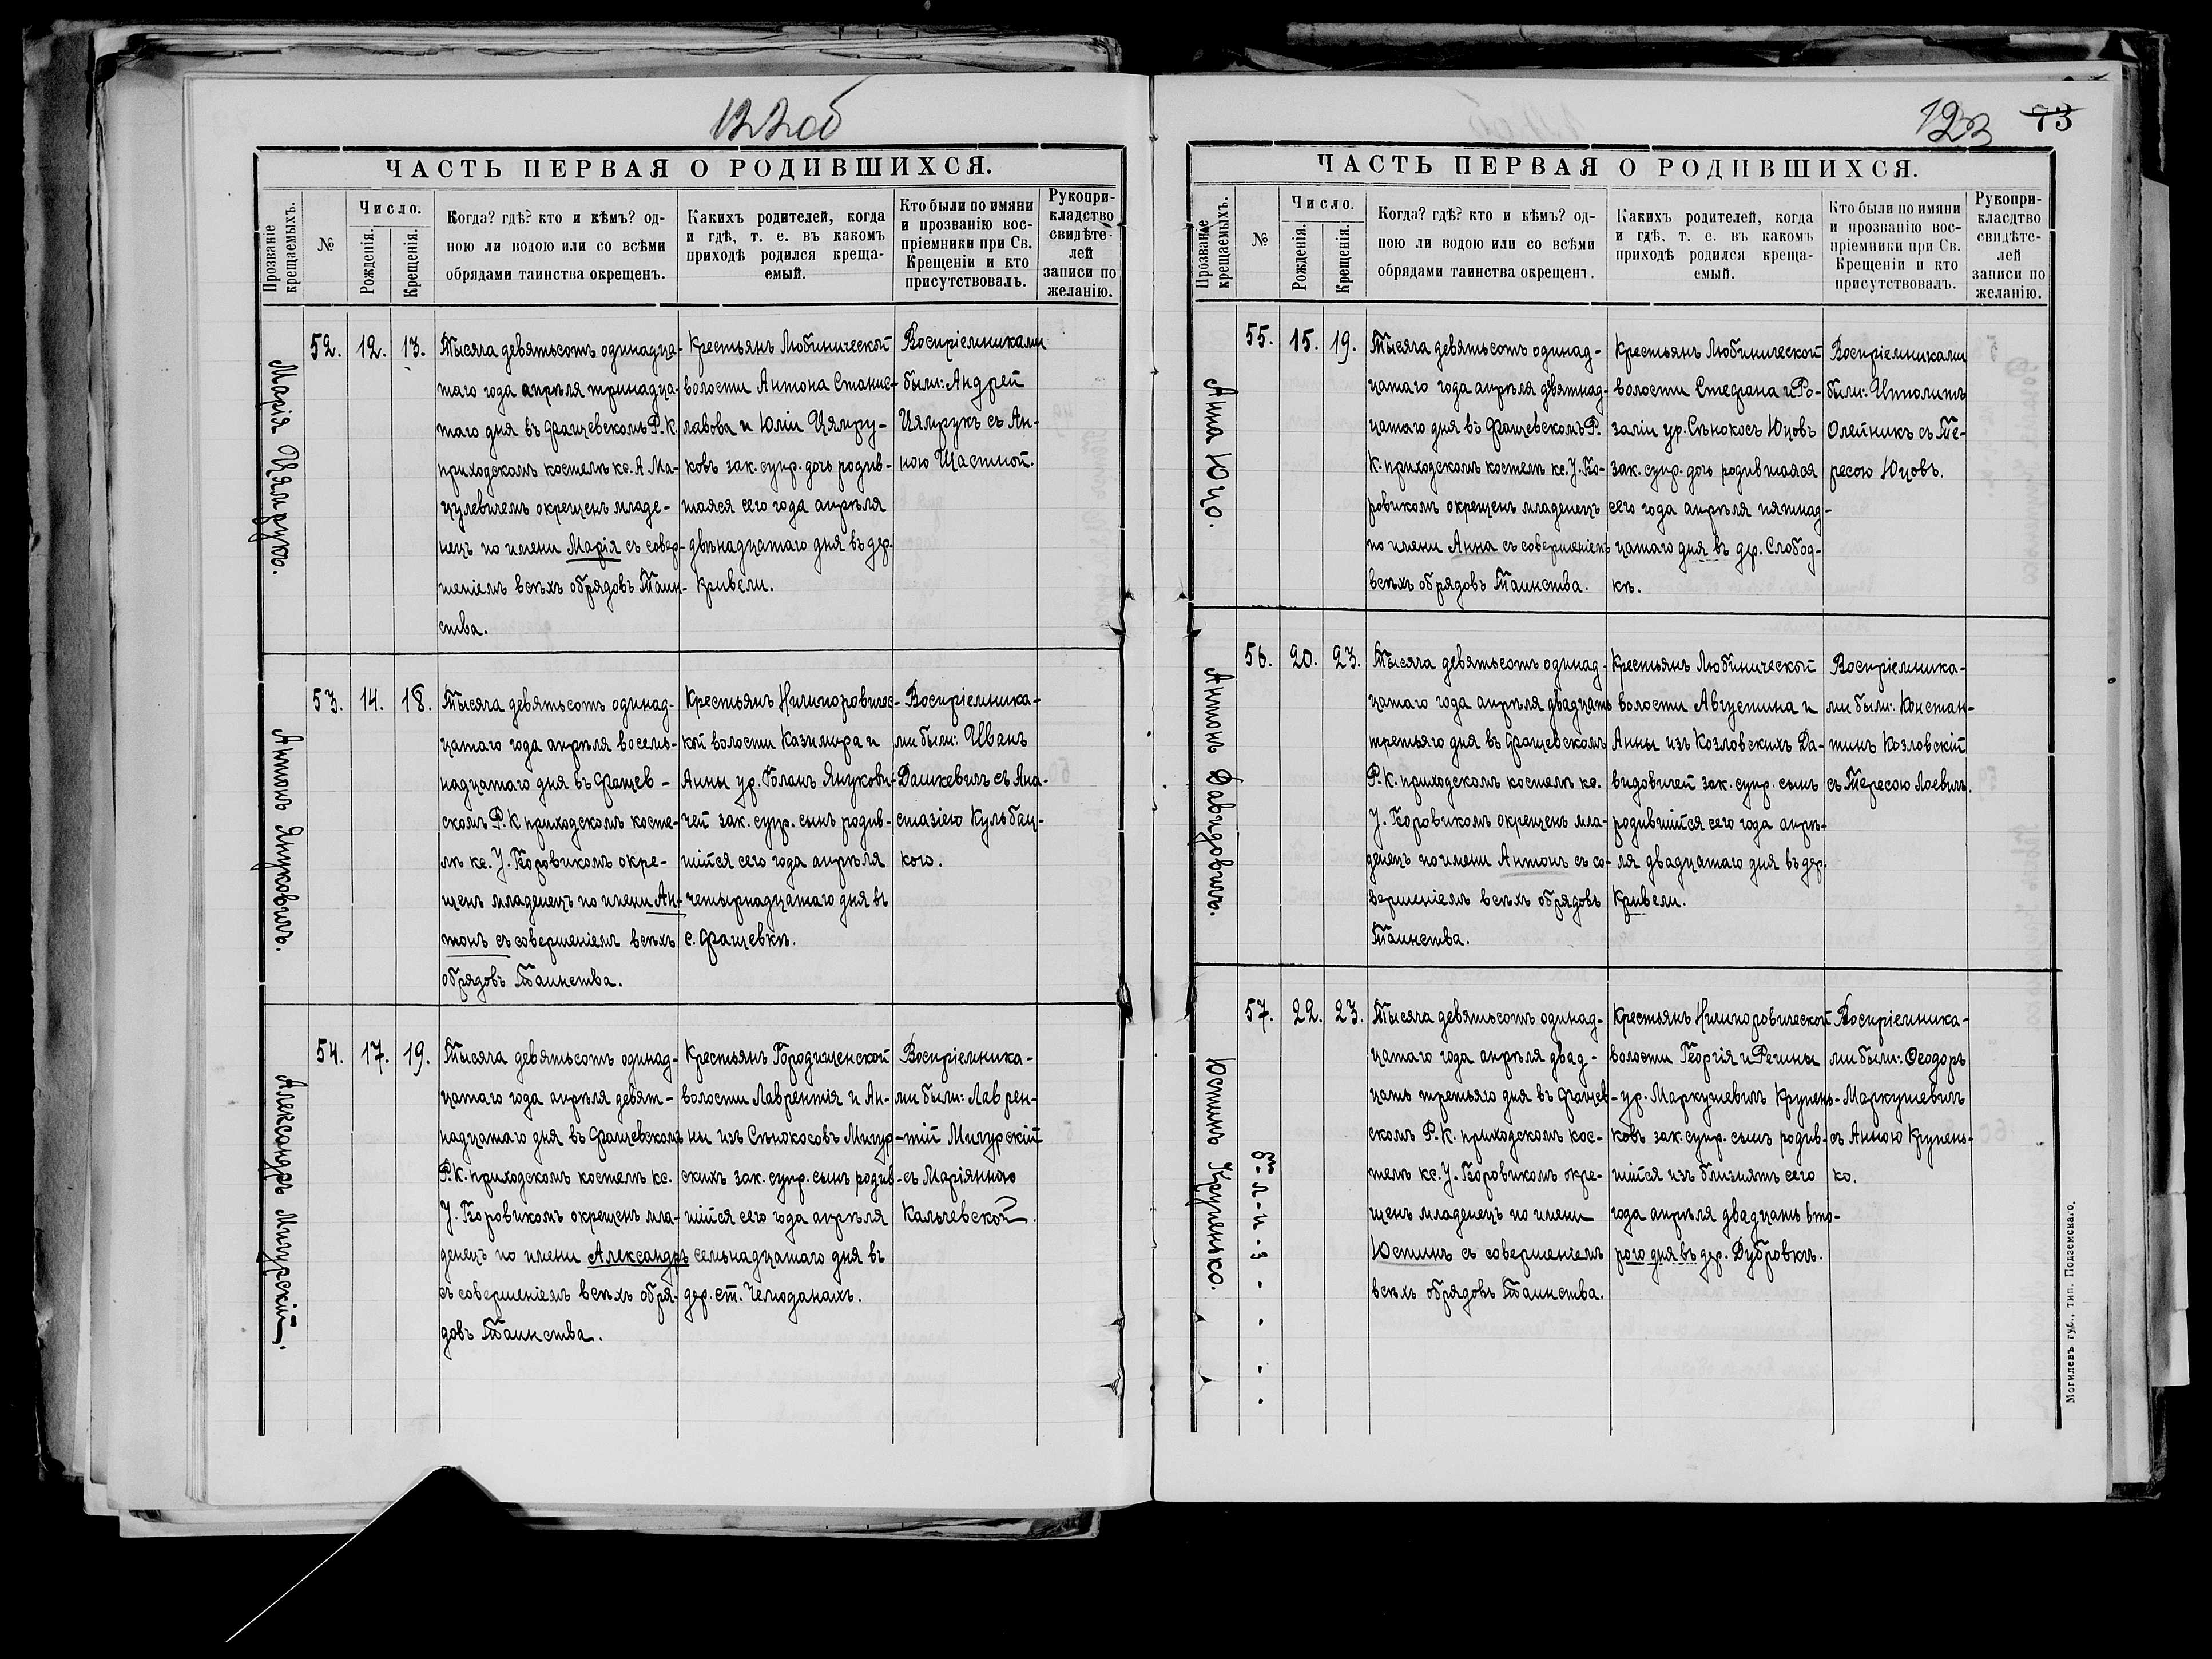 122об
ЧАСТЬ ПЕРВАЯ О РОДИВШИХСЯ.
Прозваніе крещаемыхъ.
№
Число.
Рожденія.
Крещенія.
Когда? гдѣ? кто и кѣмъ? од-
ною ли водою или со всѣми
обрядами таинства окрещенъ.
Какихъ родителей, когда
и гдѣ, т. е. въ какомъ
приходѣ родился креща-
емый.
Кто были по имяни
и прозванію вос-
пріемники при Св.
Крещеніи и кто
присутствовалъ.
Рукопри-
кладство
свидѣте-
лей
записи по
желанію.
Марія Цямрукъ.
52.
12.
13.
Тысяча девятьсотъ одинадца-
таго года апрѣля тринадца-
таго дня въ Фащевскомъ Р. К.
приходскомъ костелѣ кс. А. Ма-
цулевичемъ окрещенъ младе-
нецъ по имени Марія съ совер-
шеніемъ всѣхъ обрядовъ Таин-
ства.
Крестьянъ Любиничской
волости Антона Станис-
лавова и Юліи Цямру-
ковъ зак. супр. дочь родив-
шаяся сего года апрѣля
двѣнадцатаго дня въ дер.
Кривели.
Воспріемниками
были: Андрей
Цямрукъ съ Ан-
ною Щастной.
Антонъ Януковичъ.
53.
14.
18.
Тысяча девятьсотъ одинад-
цатаго года апрѣля восемь-
надцатаго дня въ Фащев-
скомъ Р. К. приходскомъ косте-
лѣ кс. У. Боровикомъ окре-
щенъ младенецъ по имени Ан-
тонъ съ совершеніемъ всѣхъ
обрядовъ Таинства.
Крестьянъ Ничипоровичес-
кой волости Казимира и
Анны ур. Голанъ Янукови-
чей зак. супр. сынъ родив-
шійся сего года апрѣля
четырнадцатаго дня въ
с. Фащевкѣ.
Воспріемника-
ми были: Иванъ
Дашкевичъ съ Ана-
стазіею Кульбац-
кою.
Александръ Мигурскій.
54.
17.
19.
Тысяча девятьсотъ одинад-
цатаго года апрѣля девят-
надцатаго дня въ Фащевскомъ
Р. К. приходскомъ костелѣ кс.
У. Боровикомъ окрещенъ мла-
денецъ по имени Александръ
съ совершеніемъ всѣхъ обря-
довъ Таинства.
Крестьянъ Городищенской
волости Лаврентія и Ан-
ны изъ Сѣнокосовъ Мигур-
скихъ зак. супр. сынъ родив-
шійся сего года апрѣля
семьнадцатаго дня въ
дер. ст. Чемоданахъ.
Воспріемника-
ми были: Лаврен-
тій Мигурскій
съ Маріянною
Кальчевской.
123 73
ЧАСТЬ ПЕРВАЯ О РОДИВШИХСЯ.
Прозваніе крещаемыхъ.
№
Число.
Рожденія.
Крещенія.
Когда? гдѣ? кто и кѣмъ? од-
ною ли водою или со всѣми
обрядами таинства окрещенъ.
Какихъ родителей, когда
и гдѣ, т. е. въ какомъ
приходѣ родился креща-
емый.
Кто были по имяни
и прозванію вос-
пріемники при Св.
Крещеніи и кто
присутствовалъ.
Рукопри-
класдтво
свидѣте-
лей
записи по
желанію.
Анна Юцо.
55.
15.
19.
Тысяча девятьсотъ одинад-
цатаго года апрѣля двятнад-
цатаго дня въ Фащевскомъ Р.
К. приходскомъ костелѣ кс. У. Бо-
ровикомъ окрещенъ младенецъ
по имени Анна съ совершеніемъ
всѣхъ обрядовъ Таинства.
Крестьянъ Любиничской
волости Стефана и Ро-
заліи ур. Сѣнокосъ Юцовъ
зак. супр. дочь родившаяся
сего года апрѣля пятнад-
цатаго дня въ дер. Слобод-
кѣ.
Воспріемниками
были: Ипполитъ
Олейникъ съ Те-
ресою Юцовъ.
Антонъ Давидовичъ.
56.
20.
23.
Тысяча девятьсотъ одинад-
цатаго года апрѣля двадцать
третьяго дня въ Фащевскомъ
Р. К. приходскомъ костелѣ кс.
У. Боровикомъ окрещенъ мла-
денецъ по имени Антонъ съ со-
вершеніемъ всѣхъ обрядовъ
Таинства.
Крестьянъ Любиничской
волости Августина и
Анны изъ Козловскихъ Да-
видовичей зак. супр. сынъ
родившійся сего года апрѣ-
ля двадцатаго дня въ дер.
Кривели.
Воспріемника-
ми были: Констан-
тинъ Козловскій
съ Тересою Лоевичъ.
Юстинъ Крупенько.
57.
б-л-и-з
22.
23.
Тысяча девятьсотъ одинад-
цатаго года апрѣля двад-
цать третьяго дня въ Фащев-
скомъ Р. К. приходскомъ кос-
телѣ кс. У. Боровикомъ окре-
щенъ младенецъ по имени
Юстинъ съ совершеніемъ
всѣхъ обрядовъ Таинства.
Крестьянъ Ничипоровичской
волости Георгія и Регины
ур. Маркушевичъ Крупень-
ковъ зак. супр. сынъ родив-
шійся изъ близнятъ сего
года апрѣля двадцать вто-
рого дня въ дер. Дубровкѣ.
Воспріемника-
ми были: Феодоръ
Маркушевичъ
съ Анною Крупень-
ко.
Могилевъ губ., тип. Подземскаго.